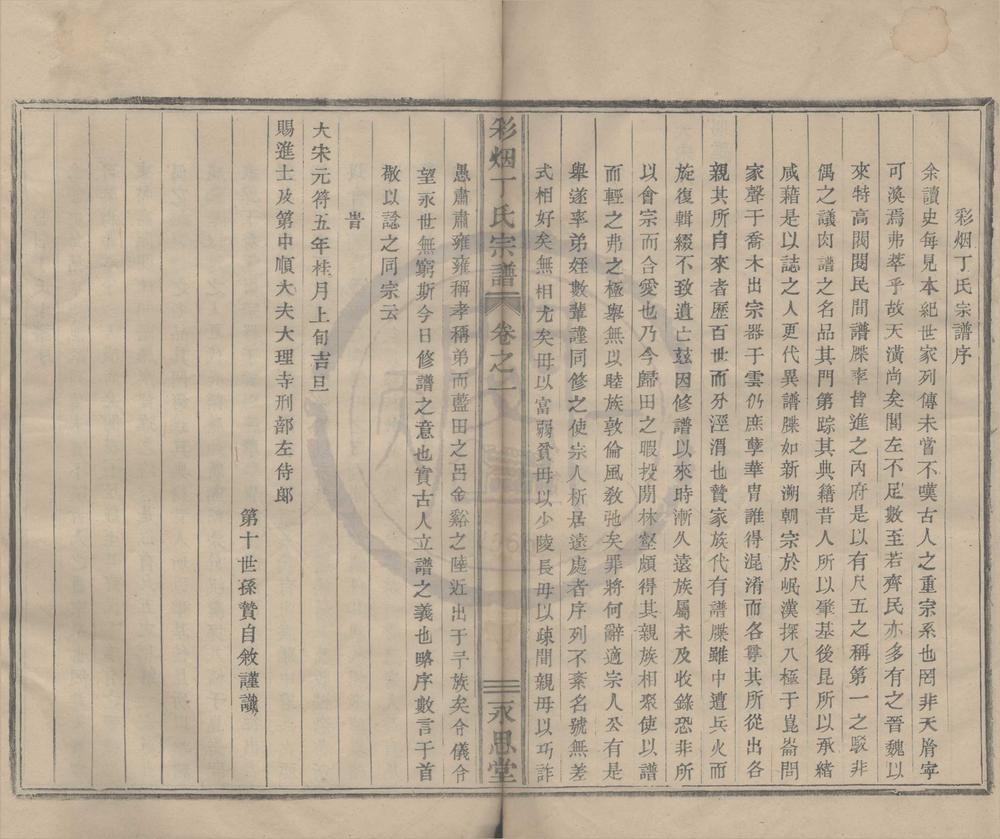 彩烟丁氏宗譜序
余讀史每見本紀世家列傳未嘗不嘆古人之重宗系也罔非天脣寜
可渙焉弗萃乎故天潢尚矣閭左不足數至若齊民亦多有之晉魏以
來特高閥閱民間譜牒率皆進之內府是以有尺五之稱第一之駁非
偶之議肉譜之名品其門第踪其典籍昔人所以肇基後昆所以承緒
咸藉是以誌之人更代異譜牒如新溯朝宗於岷漢探八極于崑崙問
家聲于喬木出宗器于雲仍庶孽華胄誰得混淆而各尋其所從出各
親其所自來者歷百世而分涇渭也贊家族代有譜牒雖中遭兵火而
旋復輯綴不致遺亡玆因修譜以來時漸久遠族屬未及收錄恐非所
以會宗而合愛也乃今歸田之暇投閒林壑頗得其親族相聚使以譜
而輕之弗之極舉無以睦族敦倫風敎弛矣罪將何辭適宗人公有是
舉遂率弟姪數輩謹同修之使宗人析居遠處者序列不紊名號無差
式相好矣無相尤矣毋以富弱貧毋以少陵長毋以疎間親毋以巧詐
彩烟丁氏宗譜 卷之一 三 永思堂
愚肅肅雍雍稱孝稱弟而藍田之呂金谿之陸近出于乎族矣合儀合
望永世無窮斯今日修譜之意也實古人立譜之義也略序數言于首
敬以諗之同宗云
旹
大宋元符五年桂月上旬吉旦
賜進士及第中順大夫大理寺刑部左侍郎
第十世孫贊自敘謹識